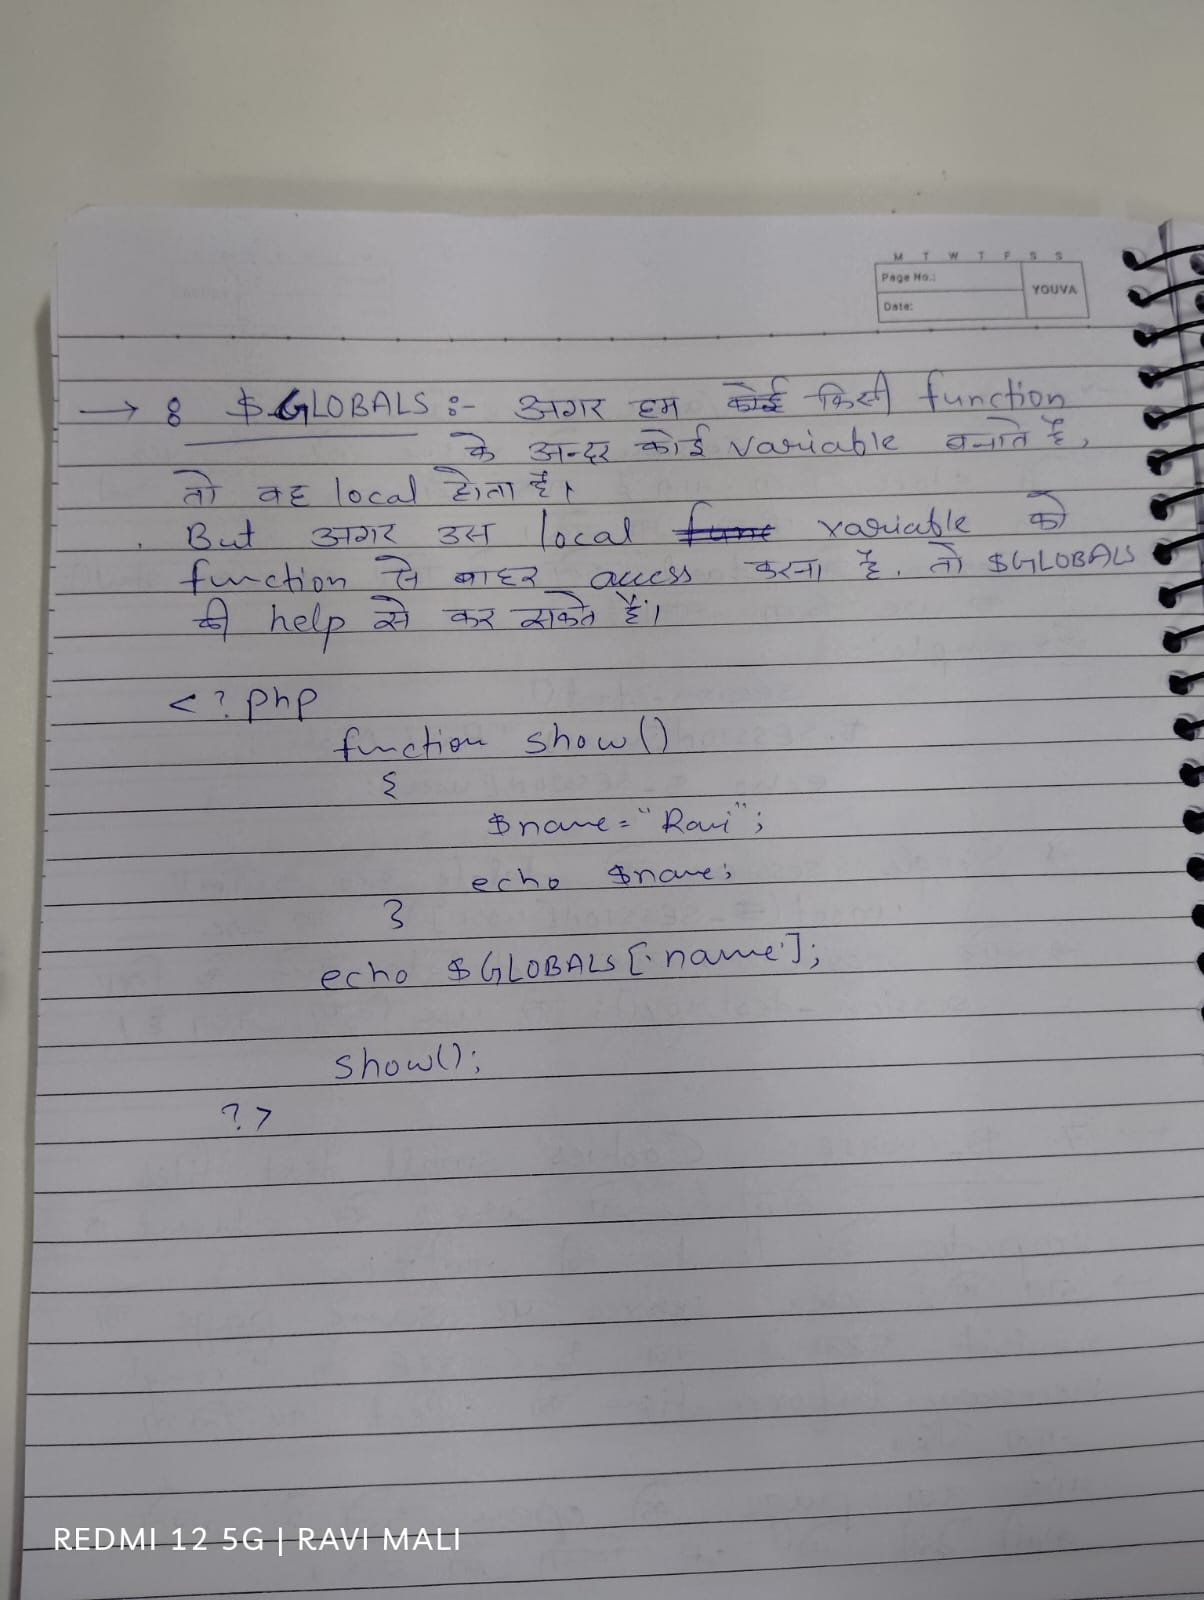 M T W T F S S
Page No.:
YOUVA
Date:
→ 8 $GLOBALS :- अगर हम कोई किसी function
के अन्दर कोई variable बनाते है,
तो वह local होता है।
But अगर उस local func variable को
function से बाहर access करना है. तो $GLOBALS
की help से कर सकते है।
<?php
function show()
{
$name="Ravi";
echo $name;
}
echo $GLOBALS['name'];
show();
?>
REDMI 12 5G | RAVI MALI